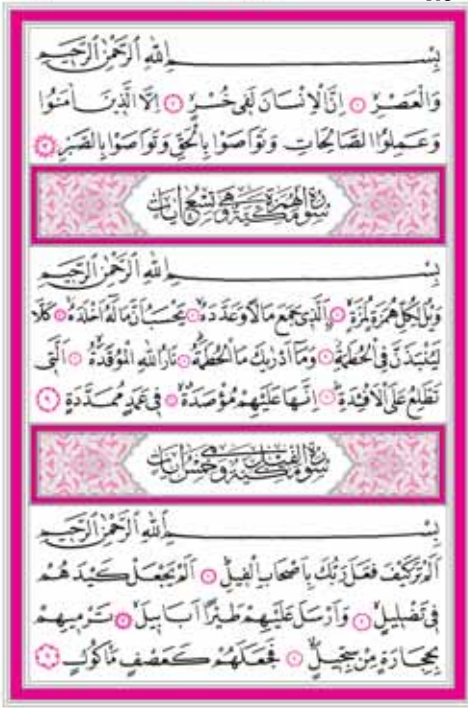 بِسْمِ اللهِ الرَّحْمٰنِ الرَّحِيمِ
وَالْعَصْرِۙ ﴿١﴾ اِنَّ الْاِنْسَانَ لَفٖى خُسْرٍۙ ﴿٢﴾ اِلَّا الَّذٖينَ اٰمَنُوا
وَعَمِلُوا الصَّالِحَاتِ وَتَوَاصَوْا بِالْحَقِّ وَتَوَاصَوْا بِالصَّبْرِ ﴿٣﴾
سُورَةُ الْهُمَزَةِ مَكِّيَّةٌ وَهِيَ تِسْعُ اٰيَاتٍ
بِسْمِ اللهِ الرَّحْمٰنِ الرَّحِيمِ
وَيْلٌ لِكُلِّ هُمَزَةٍ لُمَزَةٍۙ ﴿١﴾ اَلَّذٖى جَمَعَ مَالًا وَعَدَّدَهُۙ ﴿٢﴾ يَحْسَبُ اَنَّ مَالَهُ اَخْلَدَهُۚ ﴿٣﴾ كَلَّا
لَيُنْبَذَنَّ فِى الْحُطَمَةِۘ ﴿٤﴾ وَمَا اَدْرٰيكَ مَا الْحُطَمَةُۜ ﴿٥﴾ نَارُ اللهِ الْمُوقَدَةُۙ ﴿٦﴾ اَلَّتٖى
تَطَّلِعُ عَلَى الْاَفْـِٔدَةِۜ ﴿٧﴾ اِنَّهَا عَلَيْهِمْ مُؤْصَدَةٌۙ ﴿٨﴾ فٖى عَمَدٍ مُمَدَّدَةٍ ﴿٩﴾
سُورَةُ الْفٖيلِ مَكِّيَّةٌ وَهِيَ خَمْسُ اٰيَاتٍ
بِسْمِ اللهِ الرَّحْمٰنِ الرَّحِيمِ
اَلَمْ تَرَ كَيْفَ فَعَلَ رَبُّكَ بِاَصْحَابِ الْفٖيلِۜ ﴿١﴾ اَلَمْ يَجْعَلْ كَيْدَهُمْ
فٖى تَضْلٖيلٍۙ ﴿٢﴾ وَاَرْسَلَ عَلَيْهِمْ طَيْرًا اَبَابٖيلَۙ ﴿٣﴾ تَرْمٖيهِمْ
بِحِجَارَةٍ مِنْ سِجّٖيلٍۙ ﴿٤﴾ فَجَعَلَهُمْ كَعَصْفٍ مَأْكُولٍ ﴿٥﴾